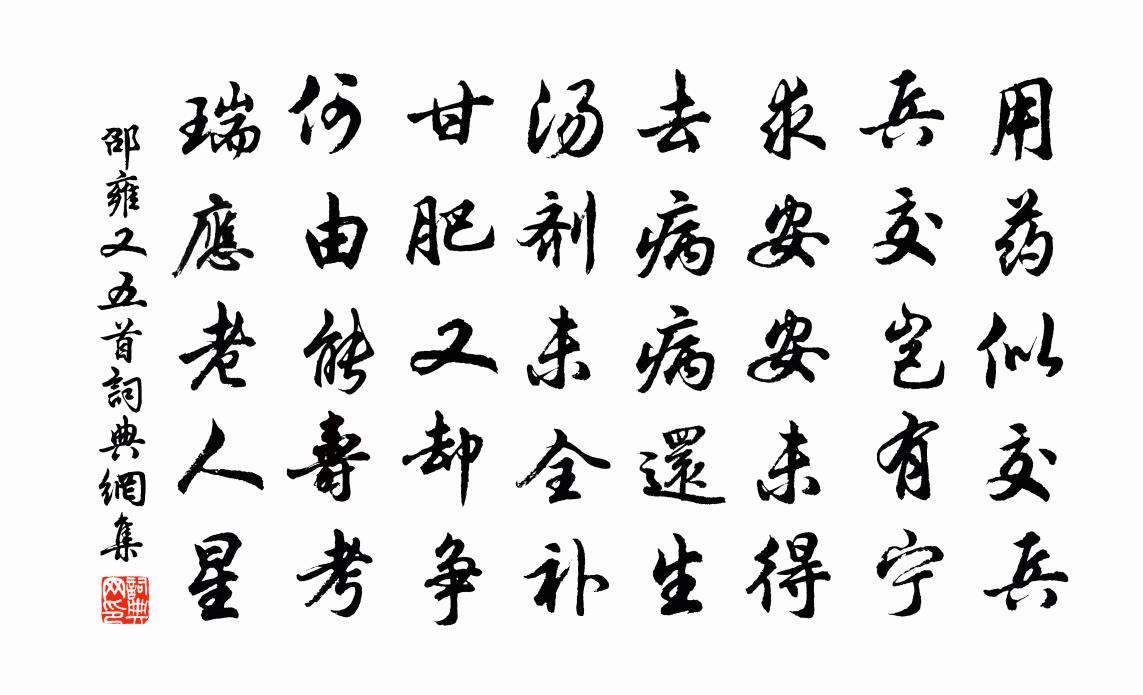 用药似交兵
兵交岂有宁
求安安未得
去病病還生
汤剂未全补
甘肥又却争
何由能壽考
瑞應老人星
邵雍又五首詞典網集
詞典网印